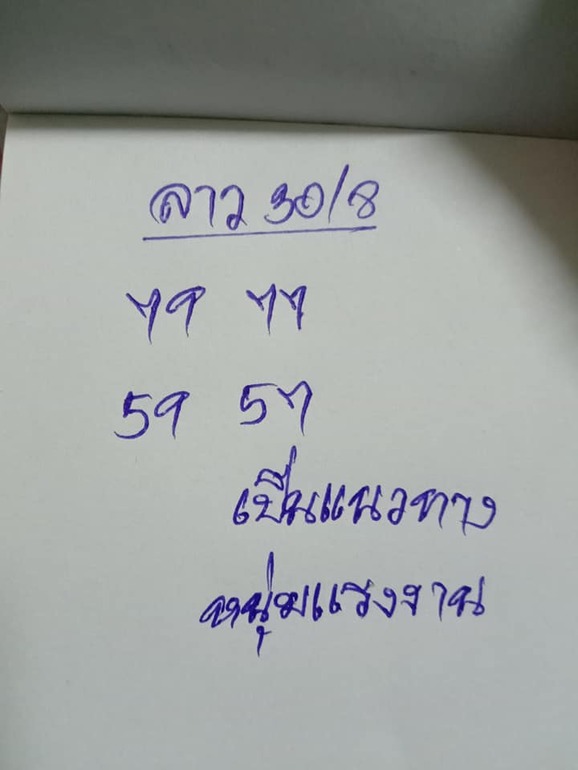 ลาว 30/8
79 77
59 57
เป็นแนวทาง
หนุ่มแรงงาน